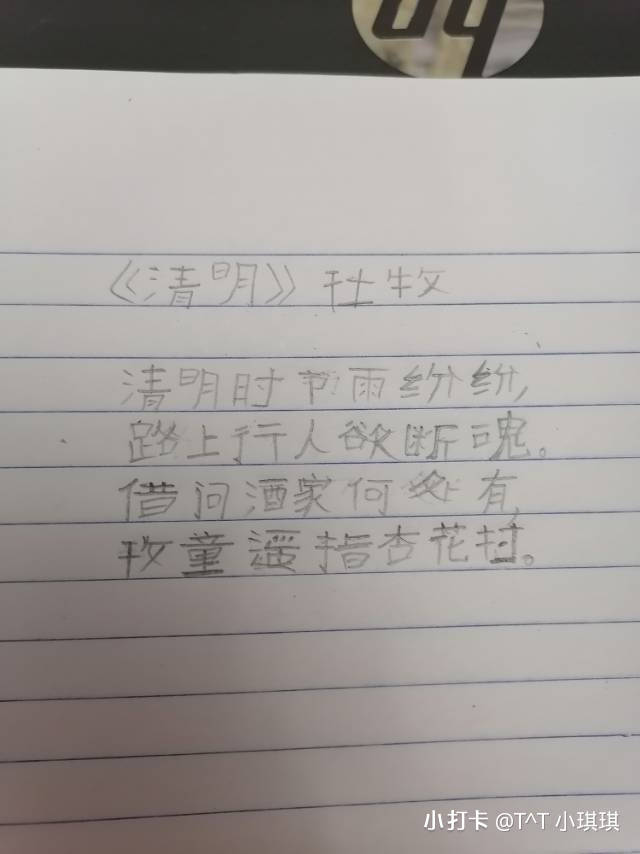 hp
《清明》杜牧
清明时节雨纷纷,
路上行人欲断魂。
借问酒家何处有,
牧童遥指杏花村。
小打卡 @T^T 小琪琪